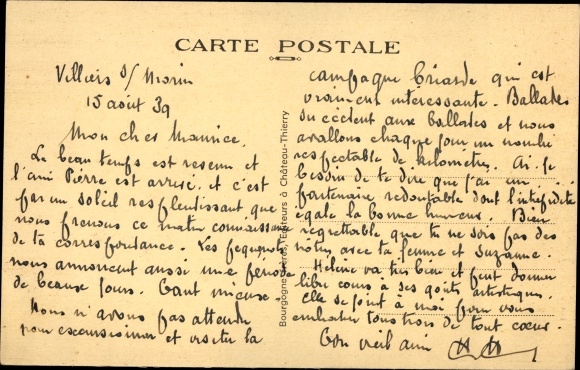 CARTE POSTALE
Villiers s/ Morin
15 août 39
Mon cher Maurice,
Le beau temps est revenu et
l'ami Pierre est arrivé, et c'est
par un soleil resplendissant que
nous prenons ce matin connaissance
de ta correspondance. Les
nous annoncent aussi une période
de beaux jours. Tant mieux.
Nous n'avons pas attendu
pour excursionner et visiter la
campagne briarde qui est
vraiment intéressante. Ballades
succèdent aux ballades et nous
avallons chaque jour un nombre
respectable de kilomètres. Ai-je
besoin de te dire que j'ai un
partenaire redoutable dont l'intrépidité
égale la bonne humeur. Bien
regrettable que tu ne sois pas des
nôtres avec ta femme et Suzanne.
Hélène va très bien et peut donner
libre cours à ses goûts artistiques.
Elle se joint à moi pour vous
embrasser tous trois de tout coeur.
Ton vieil ami
Bourgogne Frères, Editeurs à Château-Thierry